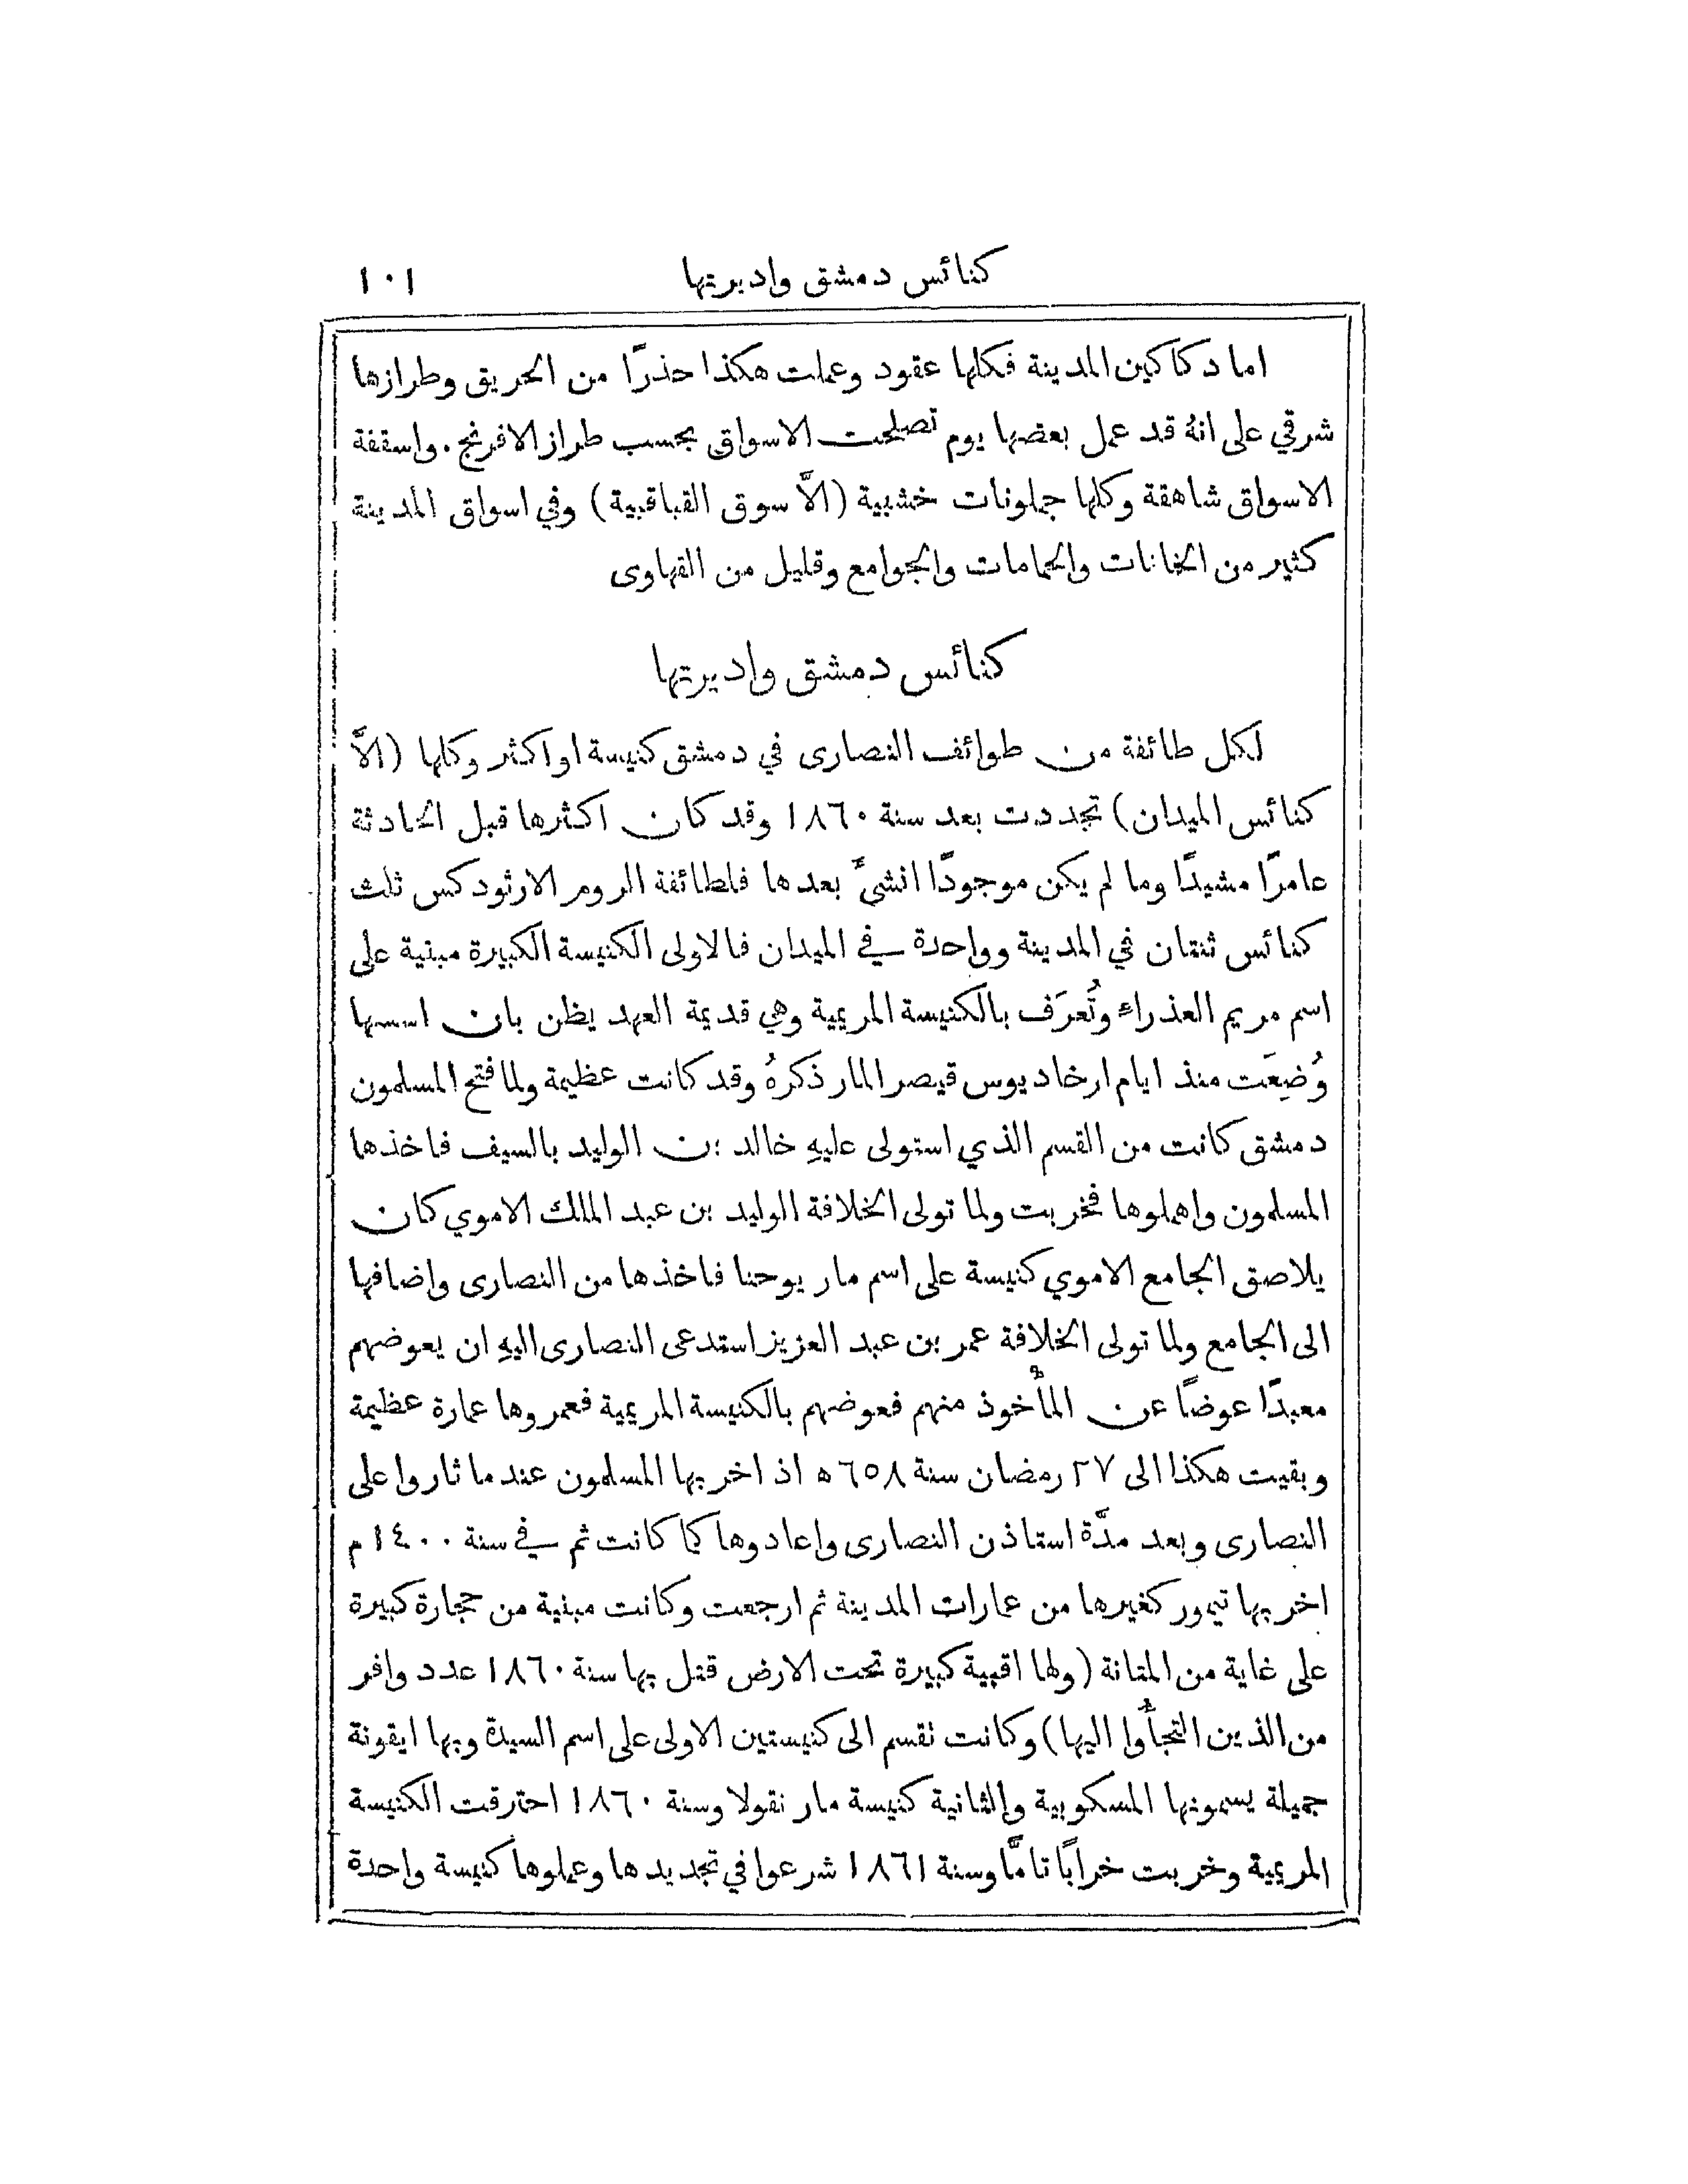 كنائس دمشق واديرتها ١٠١
اما دكاكين المدينة فكلها عقود وعملت هكذا حذرًا من الحريق وطرازها
شرقي على انهُ قد عمل بعضها يوم تصلحت الاسواق بحسب طراز الافرنج . واسقفة
الاسواق شاهقة وكلها جملونات خشبية (الاَّ سوق القباقبية) وفي اسواق المدينة
كثير من الخانات والحمامات والجوامع وقليل من القهاوى
كنائس دمشق واديرتها
لكل طائفة من طوائف النصارى في دمشق كنيسة او اكثر وكلها (الاَّ
كنائس الميدان) تجددت بعد سنة ١٨٦٠ وقد كان اكثرها قبل الحادثة
عامرًا مشيدًا وما لم يكن موجودًا انشىَّ بعدها فلطائفة الروم الارثودكس ثلث
كنائس ثنتان في المدينة وواحدة في الميدان فالاولى الكنيسة الكبيرة مبنية على
اسم مريم العذراء وتُعرَف بالكنيسة المريمية وهي قديمة العهد يظن بان اسسها
وُضِعَت منذ ايام ارخاديوس قيصر المار ذكرهُ وقد كانت عظيمة ولما فتح المسلمون
دمشق كانت من القسم الذي استولى عليهِ خالد بن الوليد بالسيف فاخذها
المسلمون واهملوها فخربت ولما تولى الخلافة الوليد بن عبد الملك الاموي كان
يلاصق الجامع الاموي كنيسة على اسم مار يوحنا فاخذها من النصارى واضافها
الى الجامع ولما تولى الخلافة عمر بن عبد العزيز استدعى النصارى اليهِ ان يعوضهم
معبدًا عوضًا عن المأخوذ منهم فعوضهم بالكنيسة المريمية فعمروها عمارة عظيمة
وبقيت هكذا الى ٢٧ رمضان سنة ٦٥٨ ه اذ اخربها المسلمون عندما ثاروا على
النصارى وبعد مدَّة استاذن النصارى واعادوها كما كانت ثم في سنة ١٤٠٠ م
اخربها تيمور كغيرها من عمارات المدينة ثم ارجعت وكانت مبنية من حجارة كبيرة
على غاية من المتانة (ولها اقبية كبيرة تحت الارض قتل بها سنة ١٨٦٠ عدد وافر
من الذين التجأُوا اليها) وكانت نقسم الى كنيستين الاولى على اسم السيدة وبها ايقونة
جميلة يسمونها المسكوبية والثانية كنيسة مار نقولا وسنة ١٨٦٠ احترقت الكنيسة
المريمية وخربت خرابًا تامًّا وسنة ١٨٦١ شرعوا في تجديدها وعملوها كنيسة واحدة